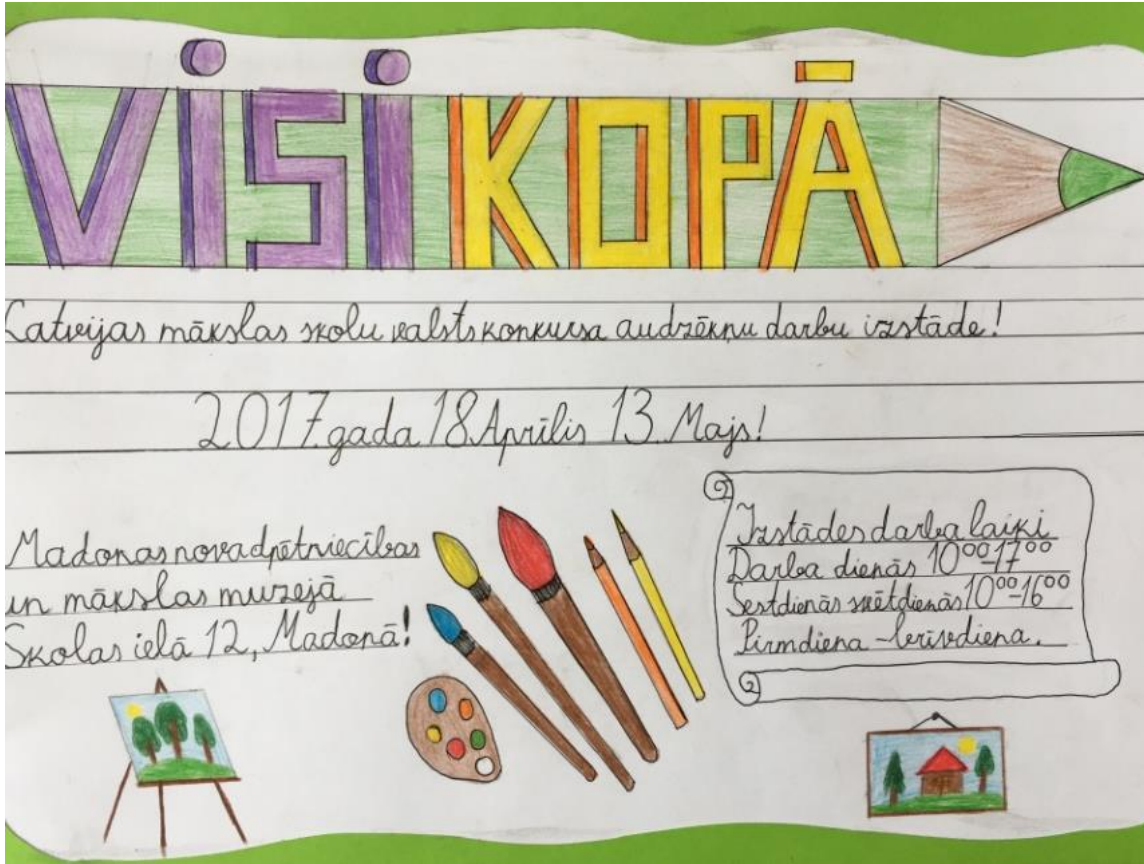 VISI KOPĀ
Latvijas mākslas skolu valsts konkursa audzēkņu darbu izstāde!
2017. gada 18. Aprīlis 13. Majs!
Madonas novadpētniecības
un mākslas muzejā
Skolas ielā 12, Madonā!
Izstādes darba laiki
Darba dienās 10⁰⁰-17⁰⁰
Sestdienās svētdienās 10⁰⁰-16⁰⁰
Pirmdiena - brīvdiena.